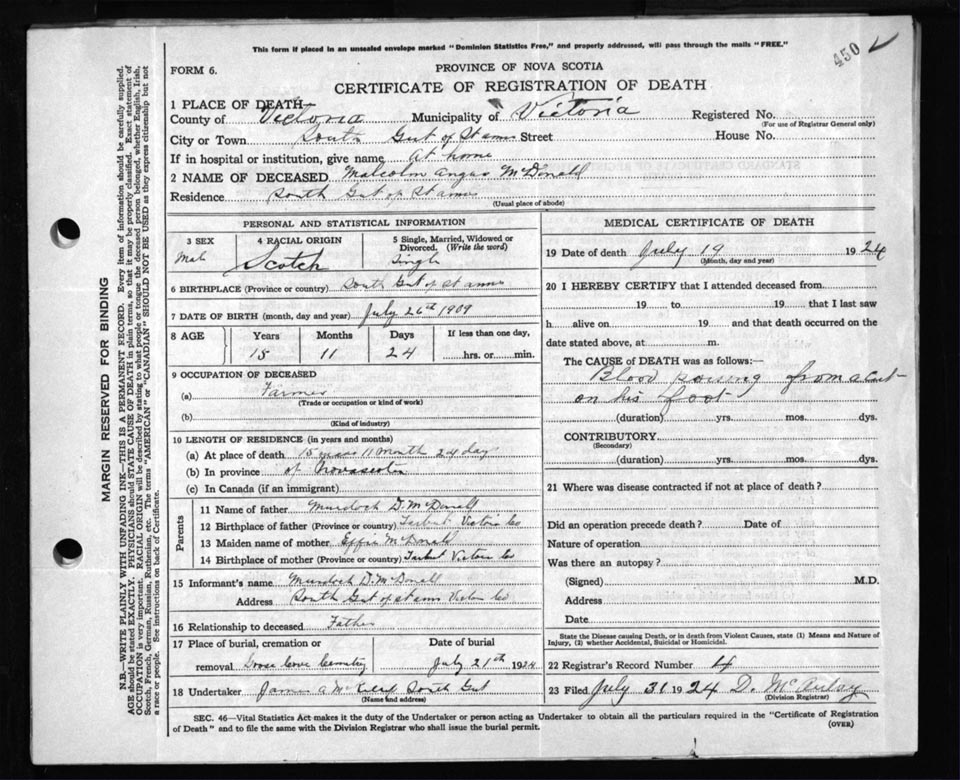 This form if placed in an unsealed envelope marked "Dominion Statistics Free," and properly addressed, will pass through the mails "FREE."
450
FORM 6.
PROVINCE OF NOVA SCOTIA
CERTIFICATE OF REGISTRATION OF DEATH
1 PLACE OF DEATH—
County of Victoria Municipality of Victoria Registered No.
(For use of Registrar General only)
City or Town South Gut of St anns Street House No.
If in hospital or institution, give name At home
2 NAME OF DECEASED Malcolm Angus McDonald
Residence South Gut of St anns
(Usual place of abode)
PERSONAL AND STATISTICAL INFORMATION
3 SEX 4 RACIAL ORIGIN 5 Single, Married, Widowed or Divorced. (Write the word)
Male Scotch Single
6 BIRTHPLACE (Province or country) South Gut of St anns
7 DATE OF BIRTH (month, day and year) July 26th 1909
8 AGE Years Months Days If less than one day,
15 11 24 hrs. or min.
9 OCCUPATION OF DECEASED
(a) Farmer
(Trade or occupation or kind of work)
(b)
(Kind of industry)
10 LENGTH OF RESIDENCE (in years and months)
(a) At place of death 15 years 11 month 24 day
(b) In province of Novascotia
(c) In Canada (if an immigrant)
Parents
11 Name of father Murdoch D. McDonald
12 Birthplace of father (Province or country) Tarbut Victoria Co
13 Maiden name of mother Effie McDonald
14 Birthplace of mother (Province or country) Tarbut Victoria Co
15 Informant's name Murdoch D. McDonald
Address South Gut of St anns Victoria Co
16 Relationship to deceased Father
17 Place of burial, cremation or Date of burial
removal Cemetery July 21th 1924
18 Undertaker James A South Gut
(Name and address)
MEDICAL CERTIFICATE OF DEATH
19 Date of death July 19 1924
(Month, day and year)
20 I HEREBY CERTIFY that I attended deceased from
19 to 19 that I last saw
h alive on 19 and that death occurred on the
date stated above, at m.
The CAUSE of DEATH was as follows:—
Blood from a cut
on his foot
(duration) yrs. mos. dys.
CONTRIBUTORY
(Secondary)
(duration) yrs. mos. dys.
21 Where was disease contracted if not at place of death?
Did an operation precede death? Date of
Nature of operation
Was there an autopsy?
(Signed) M.D.
Address
Date
State the Disease causing Death, or in death from Violent Causes, state (1) Means and Nature of Injury, (2) whether Accidental, Suicidal or Homicidal.
22 Registrar's Record Number 4
23 Filed July 31 1924 D. McAulay
(Division Registrar)
SEC. 46—Vital Statistics Act makes it the duty of the Undertaker or person acting as Undertaker to obtain all the particulars required in the "Certificate of Registration
of Death" and to file the same with the Division Registrar who shall issue the burial permit. (OVER)
MARGIN RESERVED FOR BINDING
N.B.—WRITE PLAINLY WITH UNFADING INK—THIS IS A PERMANENT RECORD. Every item of information should be carefully supplied.
AGE should be stated EXACTLY. PHYSICIANS should STATE CAUSE OF DEATH in plain terms, so that it may be properly classified. Exact statement of
OCCUPATION is very important. RACIAL ORIGIN will be described by stating to what people or tongue the deceased person belonged, whether English, Irish,
Scotch, French, German, Russian, Ruthenian, etc. The terms "AMERICAN" or "CANADIAN" SHOULD NOT BE USED as they express citizenship but not
a race or people. See instructions on back of Certificate.